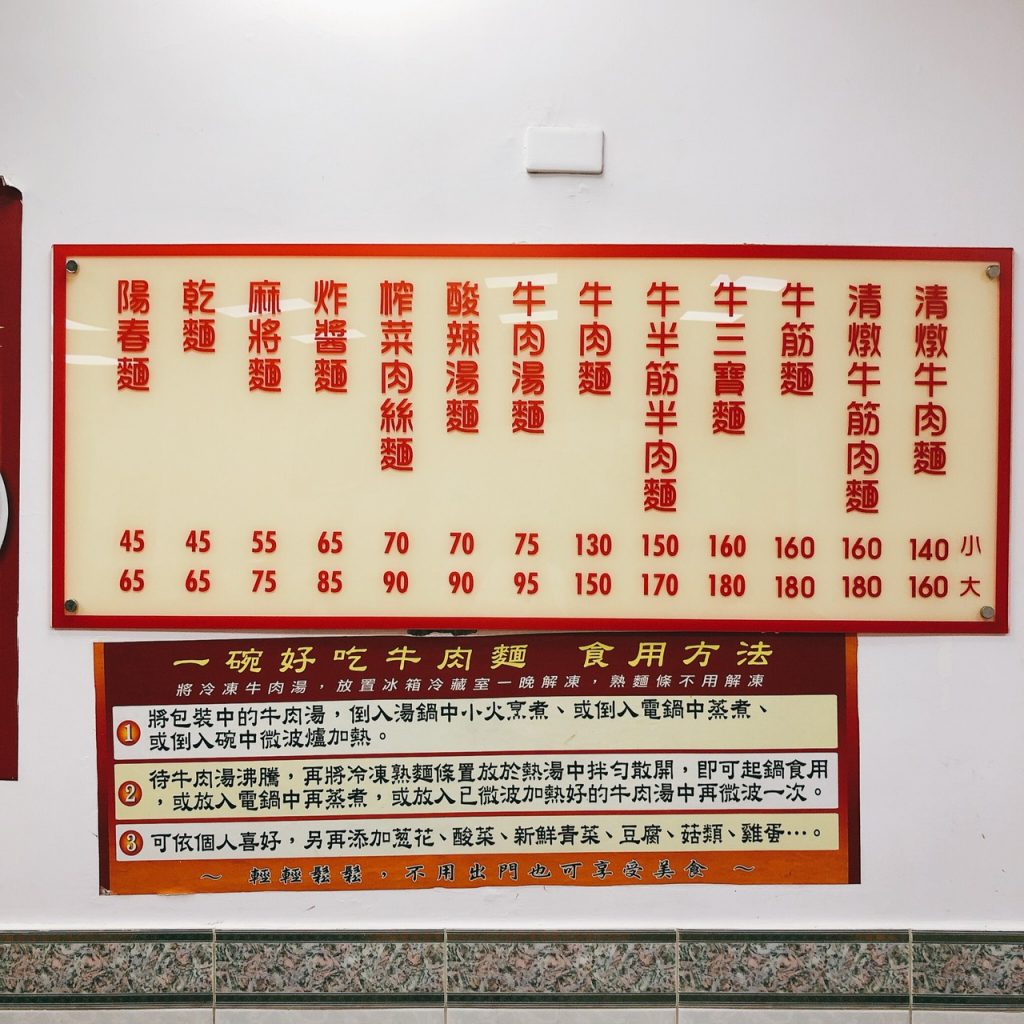 清燉牛肉麵 140 160
清燉牛筋肉麵 160 180
牛筋麵 160 180
牛三寶麵 160 180
牛半筋半肉麵 150 170
牛肉麵 130 150
牛肉湯麵 75 95
酸辣湯麵 70 90
榨菜肉絲麵 70 90
炸醬麵 65 85
麻將麵 55 75
乾麵 45 65
陽春麵 45 65
小
大
一碗好吃牛肉麵 食用方法
將冷凍牛肉湯，放置冰箱冷藏室一晚解凍，熟麵條不用解凍
1 將包裝中的牛肉湯，倒入湯鍋中小火烹煮、或倒入電鍋中蒸煮、
或倒入碗中微波爐加熱。
2 待牛肉湯沸騰，再將冷凍熟麵條置放於熱湯中拌勻散開，即可起鍋食用
，或放入電鍋中再蒸煮，或放入已微波加熱好的牛肉湯中再微波一次。
3 可依個人喜好，另再添加葱花、酸菜、新鮮青菜、豆腐、菇類、雞蛋…。
～ 輕輕鬆鬆，不用出門也可享受美食 ～